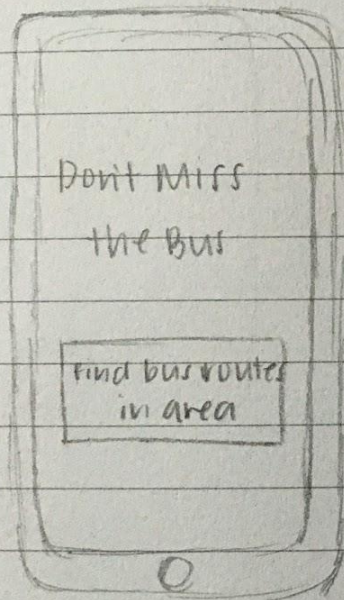 Don't Miss
the Bus
Find bus routes
in area